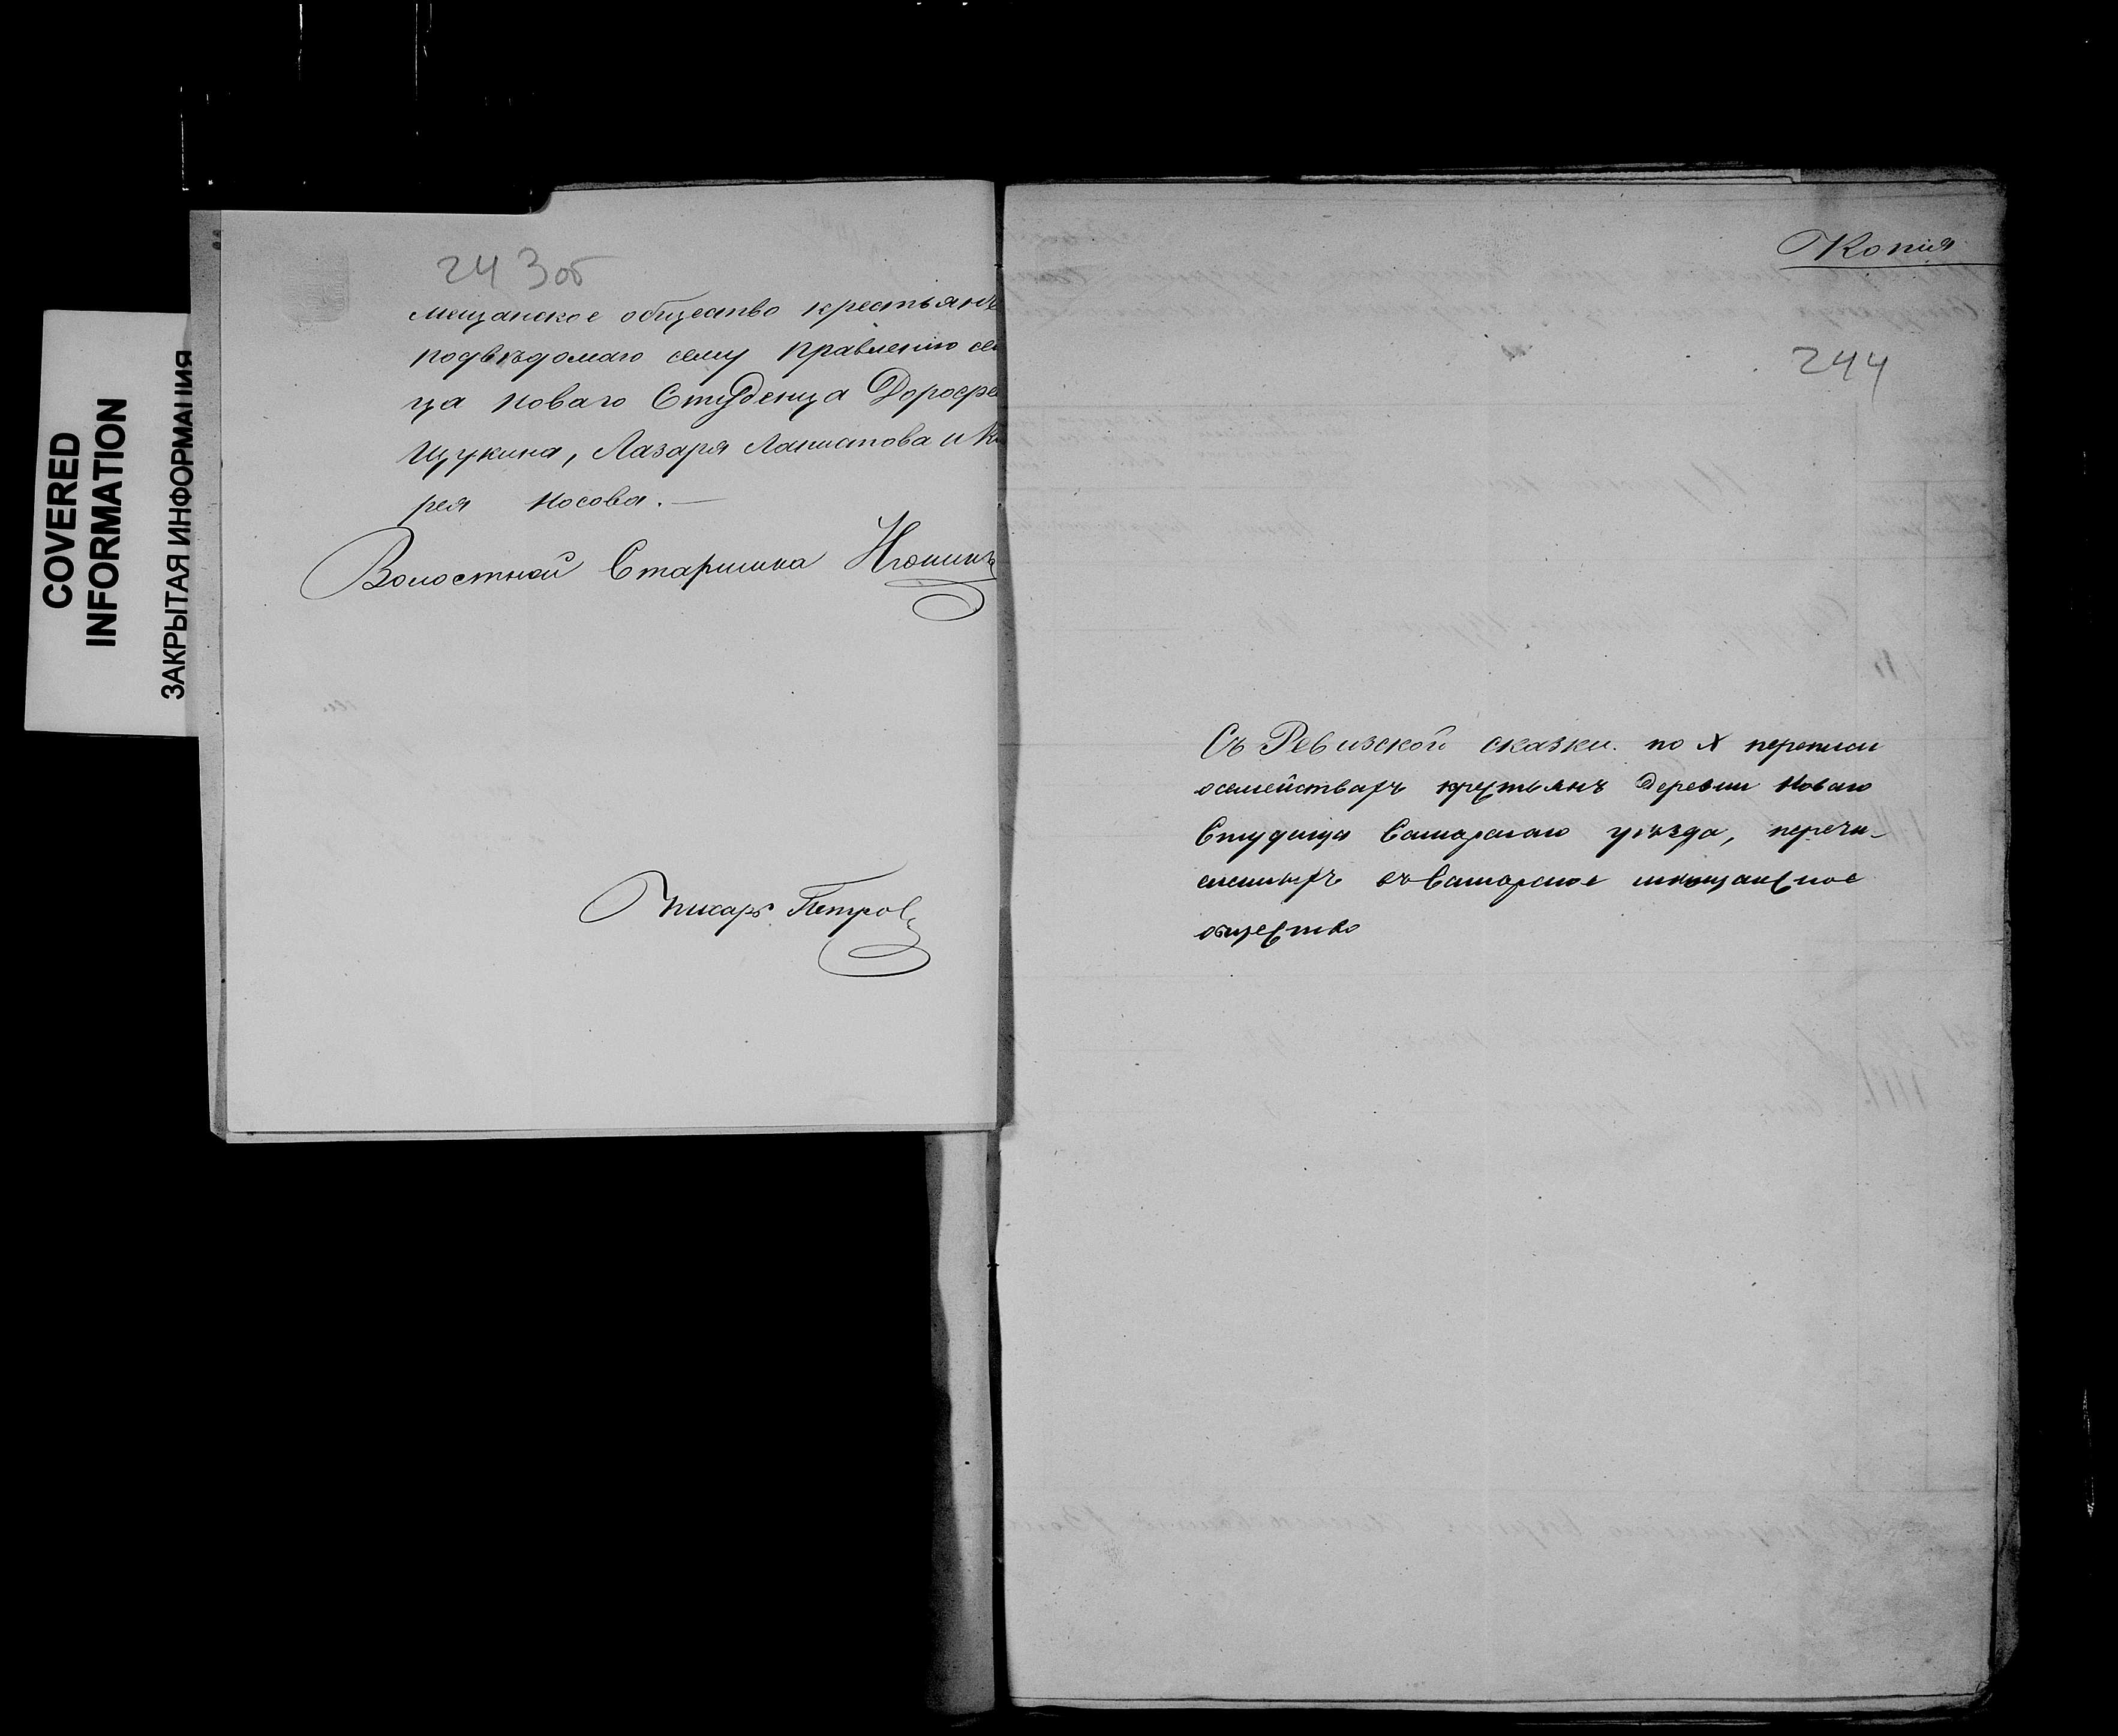 COVERED
INFORMATION
ЗАКРЫТАЯ ИНФОРМАЦИЯ
243об
мещанское общество крестьянъ
подвѣдомаго сему Правленію сел
ца Новаго Студенца Дорофе
Щукина, Лазаря и
рея Носова. —
Волостной Старшина
Писарь Петровъ
Копія
244
Съ Ревизской сказки по X переписи
осемействахъ крестьянъ деревни Новаго
Студенца Самарскаго уѣзда, перечи-
сленныхъ въ Самарское мѣщанское
общество